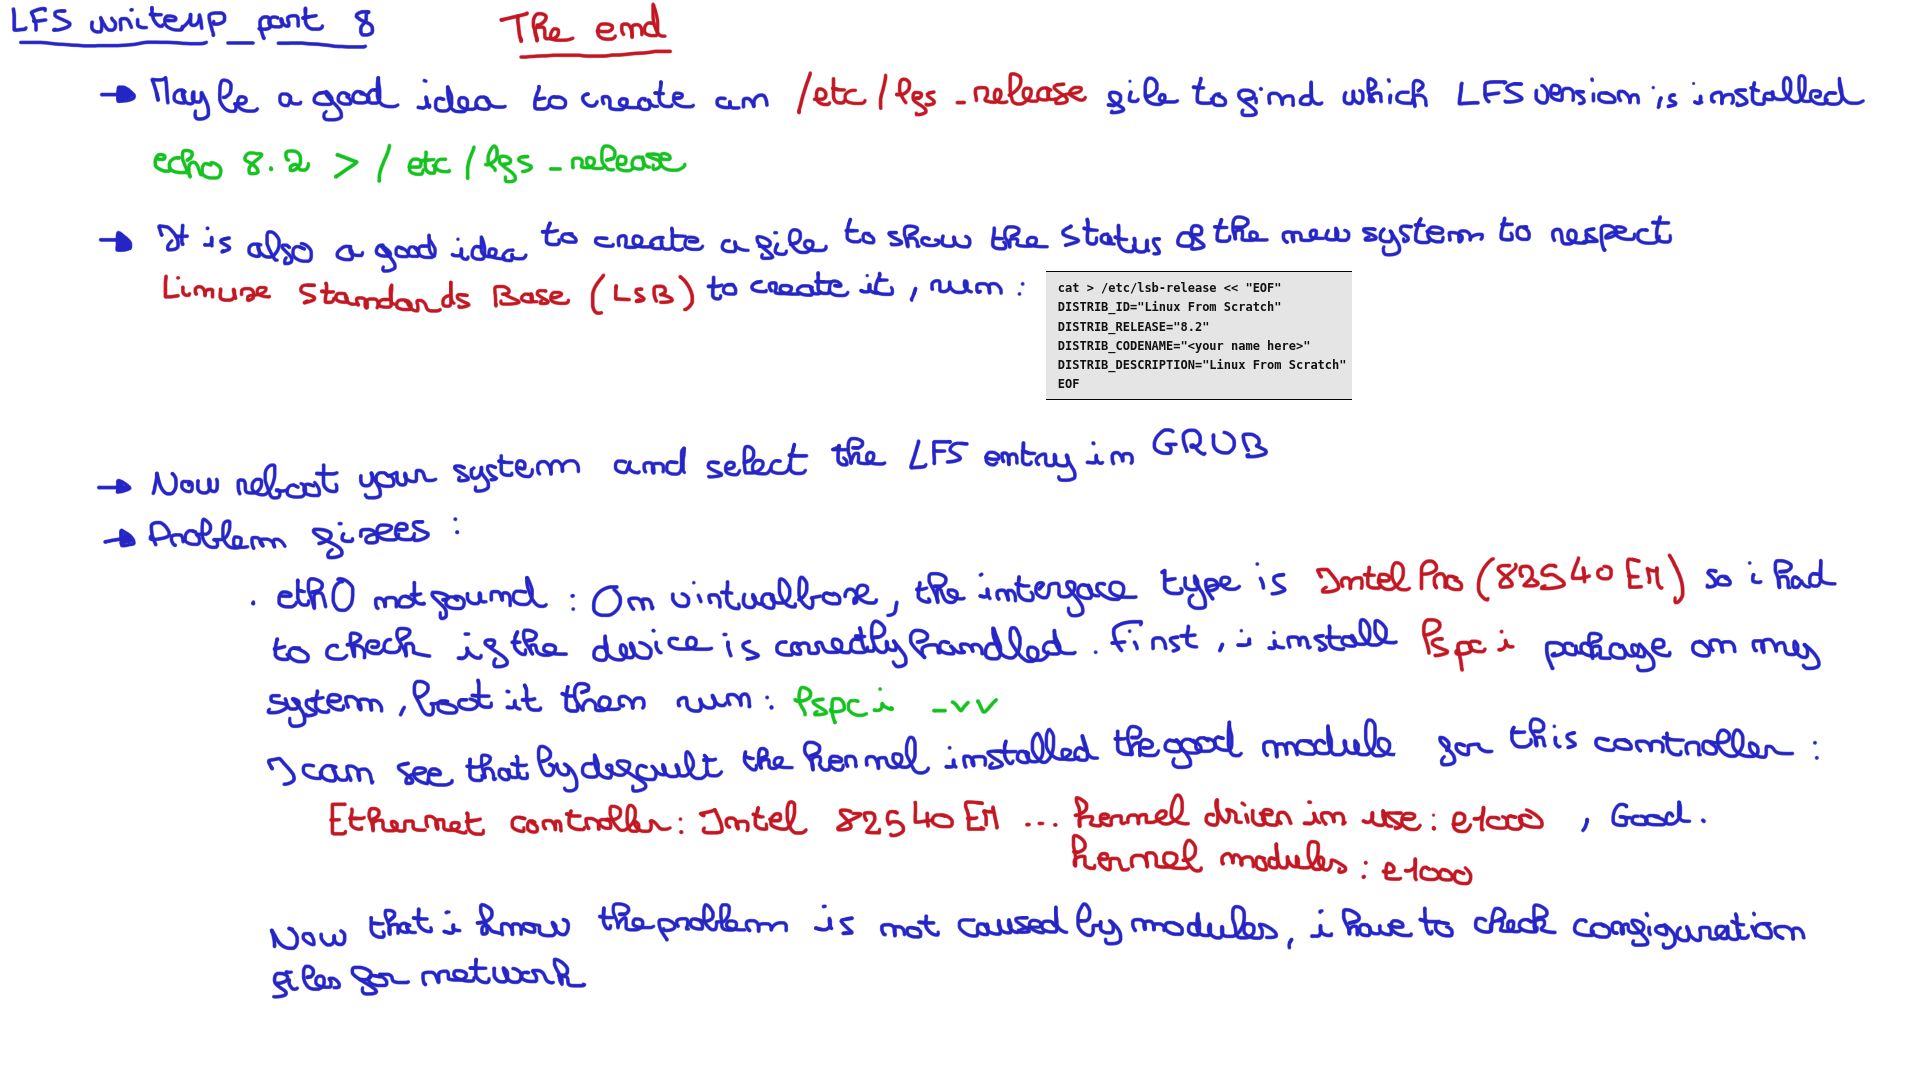 LFS writeup_part 8
The end
→ May be a good idea to create an /etc/lfs-release file to find which LFS version is installed
echo 8.2 > /etc/lfs-release
→ It is also a good idea to create a file to show the Status of the new system to respect
Linux Standards Base (LSB) to create it, run :
cat > /etc/lsb-release << "EOF"
DISTRIB_ID="Linux From Scratch"
DISTRIB_RELEASE="8.2"
DISTRIB_CODENAME="<your name here>"
DISTRIB_DESCRIPTION="Linux From Scratch"
EOF
→ Now reboot your system and select the LFS entry in GRUB
→ Problem fixes :
. eth0 not found : On virtualbox, the interface type is Intel Pro (82540EM) so i had
to check if the device is correctly handled. First, i install lspci package on my
system, boot it then run : lspci -vv
I can see that by default the kernel installed the good module for this controller :
Ethernet controller : Intel 82540EM ... kernel driver in use : e1000 , Good.
kernel modules : e1000
Now that i know the problem is not caused by modules, i have to check configuration
files for network